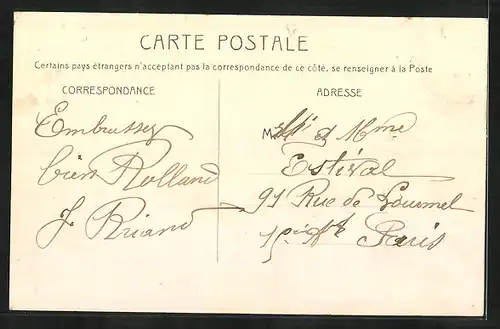 CARTE POSTALE
Certains pays étrangers n'acceptant pas la correspondance de ce côté, se renseigner à la Poste
CORRESPONDANCE
Embrassez
bien Rolland
J. Briand
ADRESSE
M et Mme
Estival
91 Rue de Lourmel
Paris